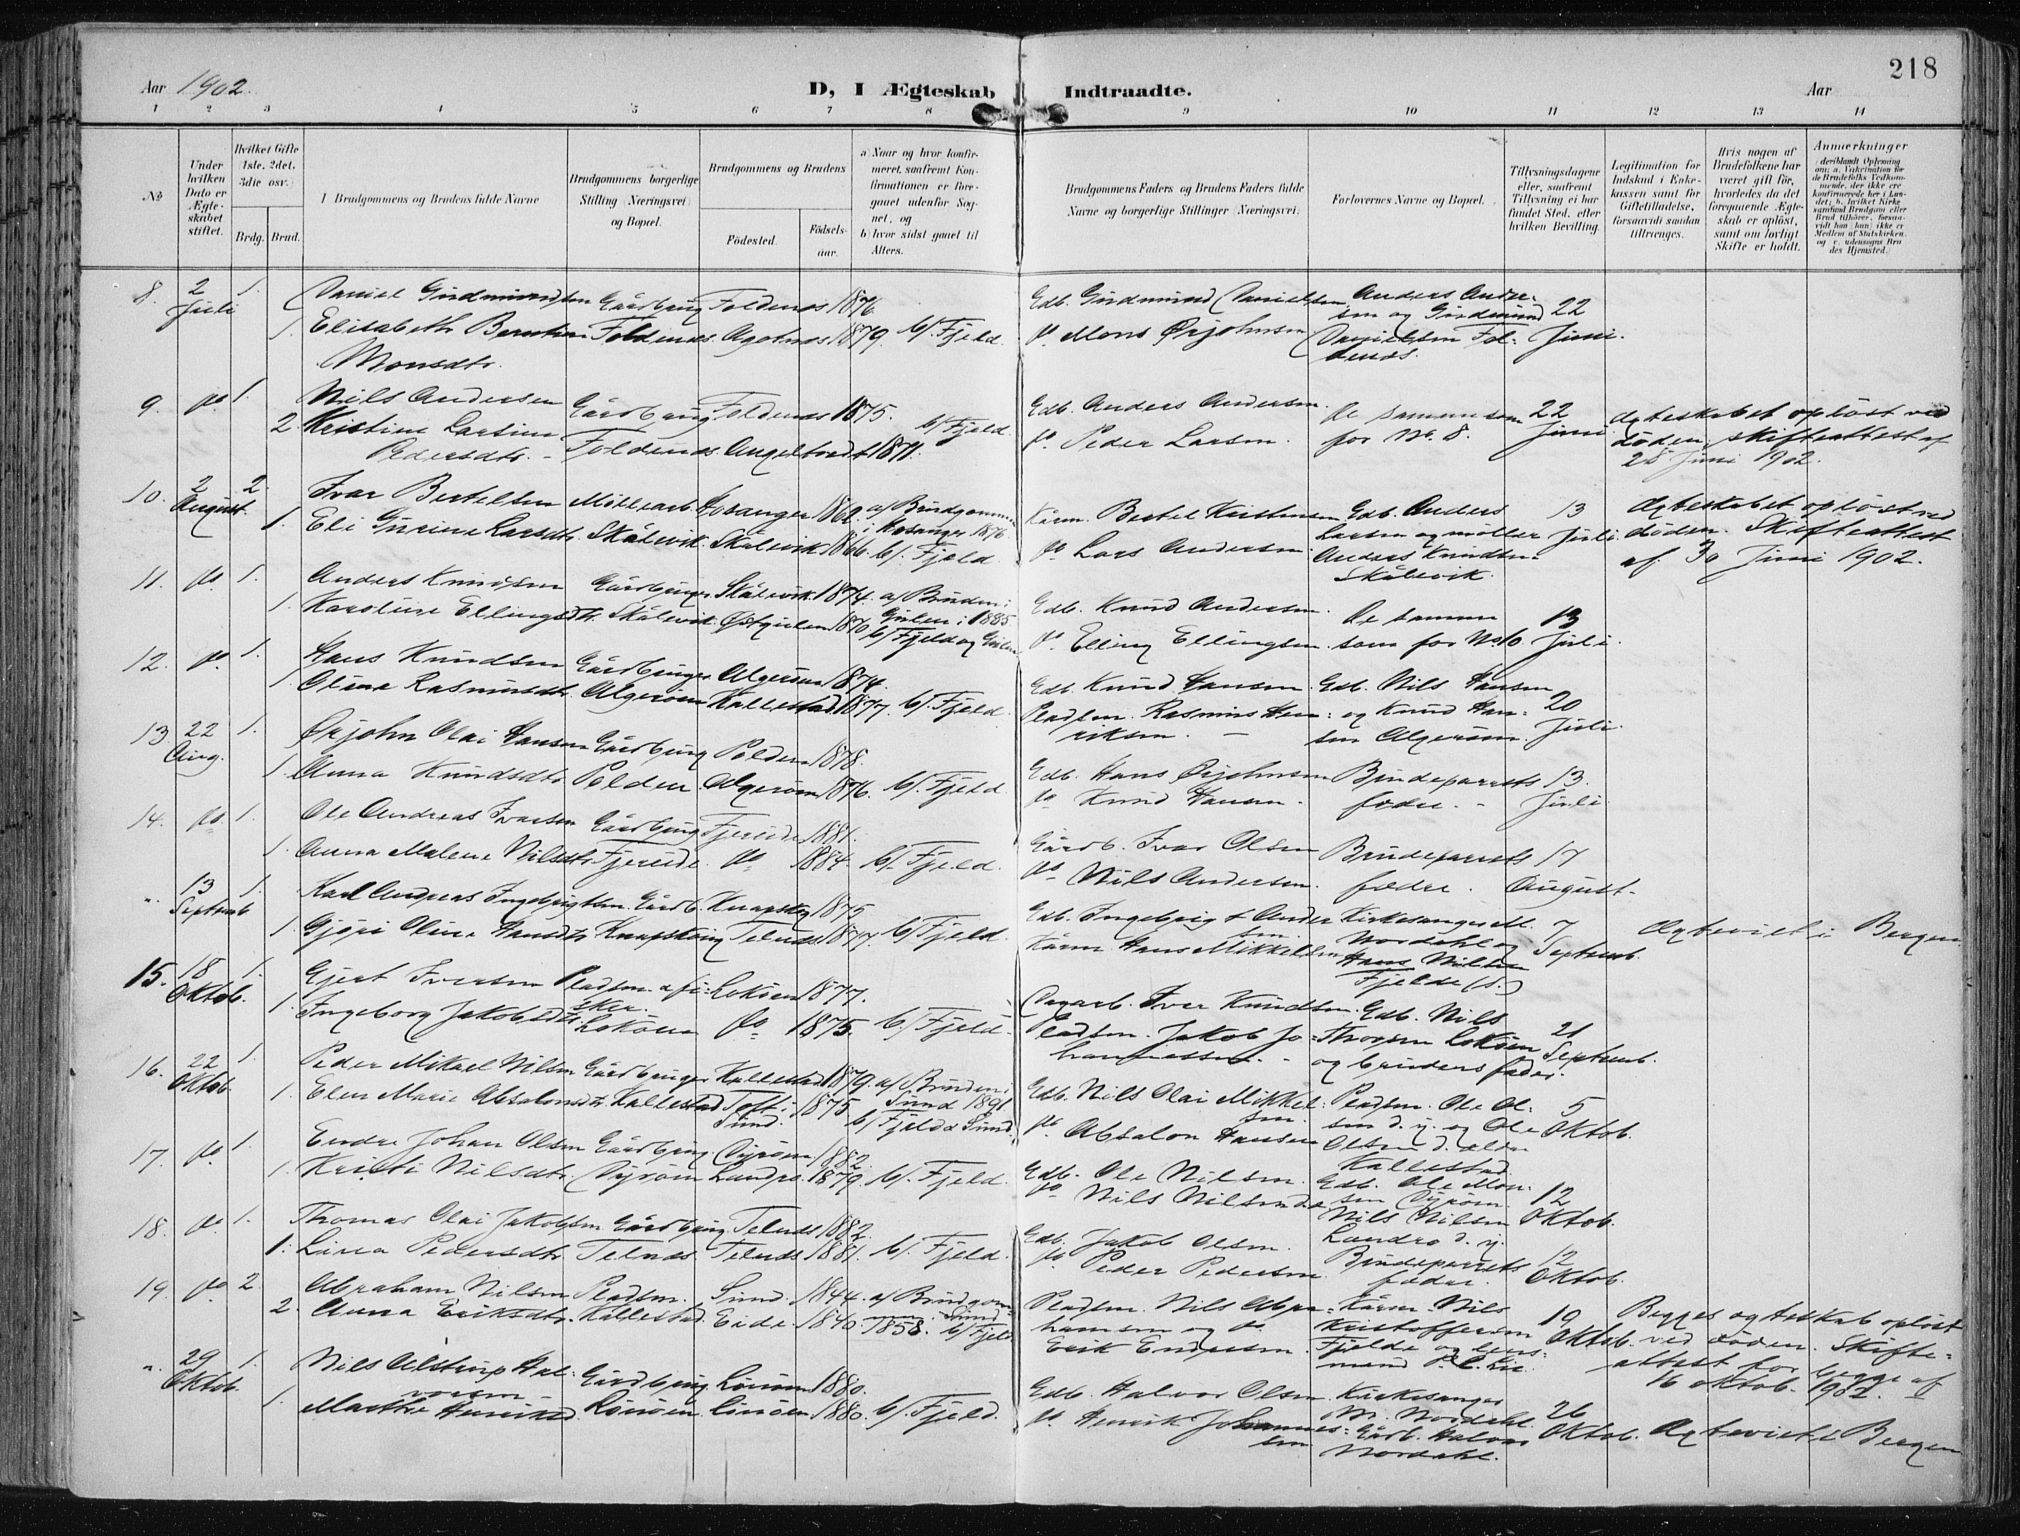 218
Aar 1902. D, I Ægteskab Indtraadte. Aar
1 2 3 4 5 6 7 8 9 10 11 12 13 14
No
Under hvilken Dato er Ægteskabet stiftet.
Hvilket Gifte (1ste, 2det, 3die osv.)
Brdg. Brud.
I Brudgommens og Brudens fulde Navne
Brudgommens borgerlige Stilling (Næringsvei) og Bopæl.
Brudgommens og Brudens
Fødested. Fødselsaar.
a) Naar og hvor konfirmeret, saafremt Konfirmationen er foregaaet udenfor Sognet, og
b) hvor sidst gaaet til Alters.
Brudgommens Faders og Brudens Faders fulde Navne og borgerlige Stillinger (Næringsvei)
Forlovernes Navne og Bopæl.
Tillysningsdagene eller, saafremt Tillysning ei har fundet Sted, efter hvilken Bevilling.
Legitimation for Indskud i Enkekassen samt for Giftetilladelse, forsaavidt saadan tiltrænges.
Hvis nogen af Brudefolkene har været gift før, hvorledes da det foregaaende Ægteskab er opløst, samt om lovligt Skifte er holdt.
Anmærkninger
8. 2 Juli 1. Daniel Gudmundsen Gårdbrug. Foldnes 1876
1. Elisabeth Berntine Foldnes. Agotnes 1879. b/. Fjeld.
Monsdtr.
Edb. Gudmund Danielsen
do. Mons Ørjohnsen
Anders Andersen og Gudmund Danielsen Foldnes.
22 Juni.
9. do. 1. Nils Andersen Gårdbrug Foldnes 1875.
2. Kristine Larsine Pedersdtr. Foldnes. Angeltvedt 1871. b/ Fjeld
Edb. Anders Andersen.
do Peder Larsen.
De samme som for No. 8.
22 Juni
Ægteskabet opløst ved døden. skifteattest af 28 Juni 1902.
10. 2 August. 2. Ivar Bertelsen Møllearb. Hosanger 1862. a/ Brudgommen i Hosanger 1876
1. Eli Gurine Larsdtr. Skålevik. Skålevik 1866. b/. Fjeld
Bertel Kristensen
do Lars Andersen.
Edb. Anders Larsen og møller Anders Knudsen Skålevik.
13 Juli
Ægteskabet opløst ved døden. Skifteattest af 30 Juni 1902.
11. do. 1. Anders Knudsen Gårdbruger Skålevik. 1874. a/ Bruden i Gulen i 1885
1. Karoline Ellingsdtr. Skålevik. Østgulen 1870 b/ Fjeld og Gulen
Edb. Knud Andersen.
do. Elling Ellingsen.
De samme som for No. 10
13 Juli.
12. do. 1. Hans Knudsen Gårdbruger Algerøen 1874.
1. Oline Rasmusdtr. Algerøen Kallestad 1877. b/. Fjeld.
Edb. Knud Hansen.
Pladsm. Rasmus Henriksen.
Edb. Nils Hansen og Knud Hansen Algerøen.
20 Juli.
13 22 Aug. 1. Ørjohn Olai Hansen Gårdbrug Polden 1878.
1. Anna Knudsdtr. Polden. Algerøen 1876. b/. Fjeld
Edb. Hans Ørjohnsen
do Knud Hansen.
Brudeparrets fædre.
13. Juli.
14. do 1. Ole Andreas Ivarsen Gårdbrug Fjereide 1881.
1. Anna Malene Nilsdtr. Fjereide. do 1884. b/. Fjeld.
Gårdb. Ivar Olsen
do Nils Andersen.
Brudeparrets fædre.
17 August.
". 13 Septemb 1. Karl Andreas Ingebrigtsen. Gårdb. Knapskog 1875
1. Gjøri Oline Hansdtr. Knapskog Telnes 1877. b/ Fjeld.
Edb. Ingebrigt Andersen
Hans Mikkelsen
Kirkesanger M. Nordahl og Hans Nilsen Fjelde (s.)
7 Septemb.
Ægteviet i Bergen
15. 18 Oktob. 1. Gjert Iversen Pladsm. & fisker. Loköen 1877.
1. Ingeborg Jakobsdtr. Loköen do 1875. b/ Fjeld.
Dagarb. Iver Knudsen.
Pladsm. Jakob Johannessen.
Edb. Nils Thorsen Loköen og brudens fader.
21 Septemb.
16. 22 Oktob. 1. Peder Mikael Nilsen Gårdbruger Kallestad 1879. a/ Bruden i Sund 1891
1. Elen Marie Absalonsdtr. Kallestad Toft i Sund. 1875 b/ Fjeld & Sund.
Edb. Nils Olai Mikkelsen.
do. Absalon Hansen
Pladsm. Ole Olsen d. y. og Ole Olsen d. ældre Kallestad.
5 Oktob.
17. do. 1. Endre Johan Olsen Gårdbrug. Dyrøen 1882.
1. Kristi Nilsdtr. Dyrøen Landro. 1879. b/. Fjeld.
Edb. Ole Nilsen.
do Nils Nilsen
Edb. Ole Monsen Dyrøen. Nils Nilsen Landro d. y.
12 Oktob.
18. do. 1. Thomas Olai Jakobsen Gårdbrug Telnes 1882.
1. Lina Pedersdtr. Telnes. Telnes 1881. b/. Fjeld.
Edb. Jakob Olsen.
do Peder Pedersen
Brudeparrets fædre.
12 Oktob.
19. do 2. Abraham Nilsen Pladsm. Sund. 1844. a/ Brudgommen i Sund 1858.
2. Anna Eriksdtr. Kallestad. Eide. 1840. b/ Fjeld
Pladsm. Nils Abrahamsen og do. Erik Endresen.
Nils Kristoffersen Fjelde og lensmand P. C. Lie
19 Oktob.
Begges ægteskab opløst ved døden. Skifteattest for begge af 16 Oktob. 1902.
". 29 Oktob. 1. Nils Alstrup Halvorsen Gårdbrug. 1880.
1. Marthe 1880. b/. Fjeld.
Edb. Halvor Olsen
do. Henrik Johannessen
Kirkesanger M. Nordahl. Gårdb. Halvor Nordahl.
26 Oktob.
Ægteviet i Bergen